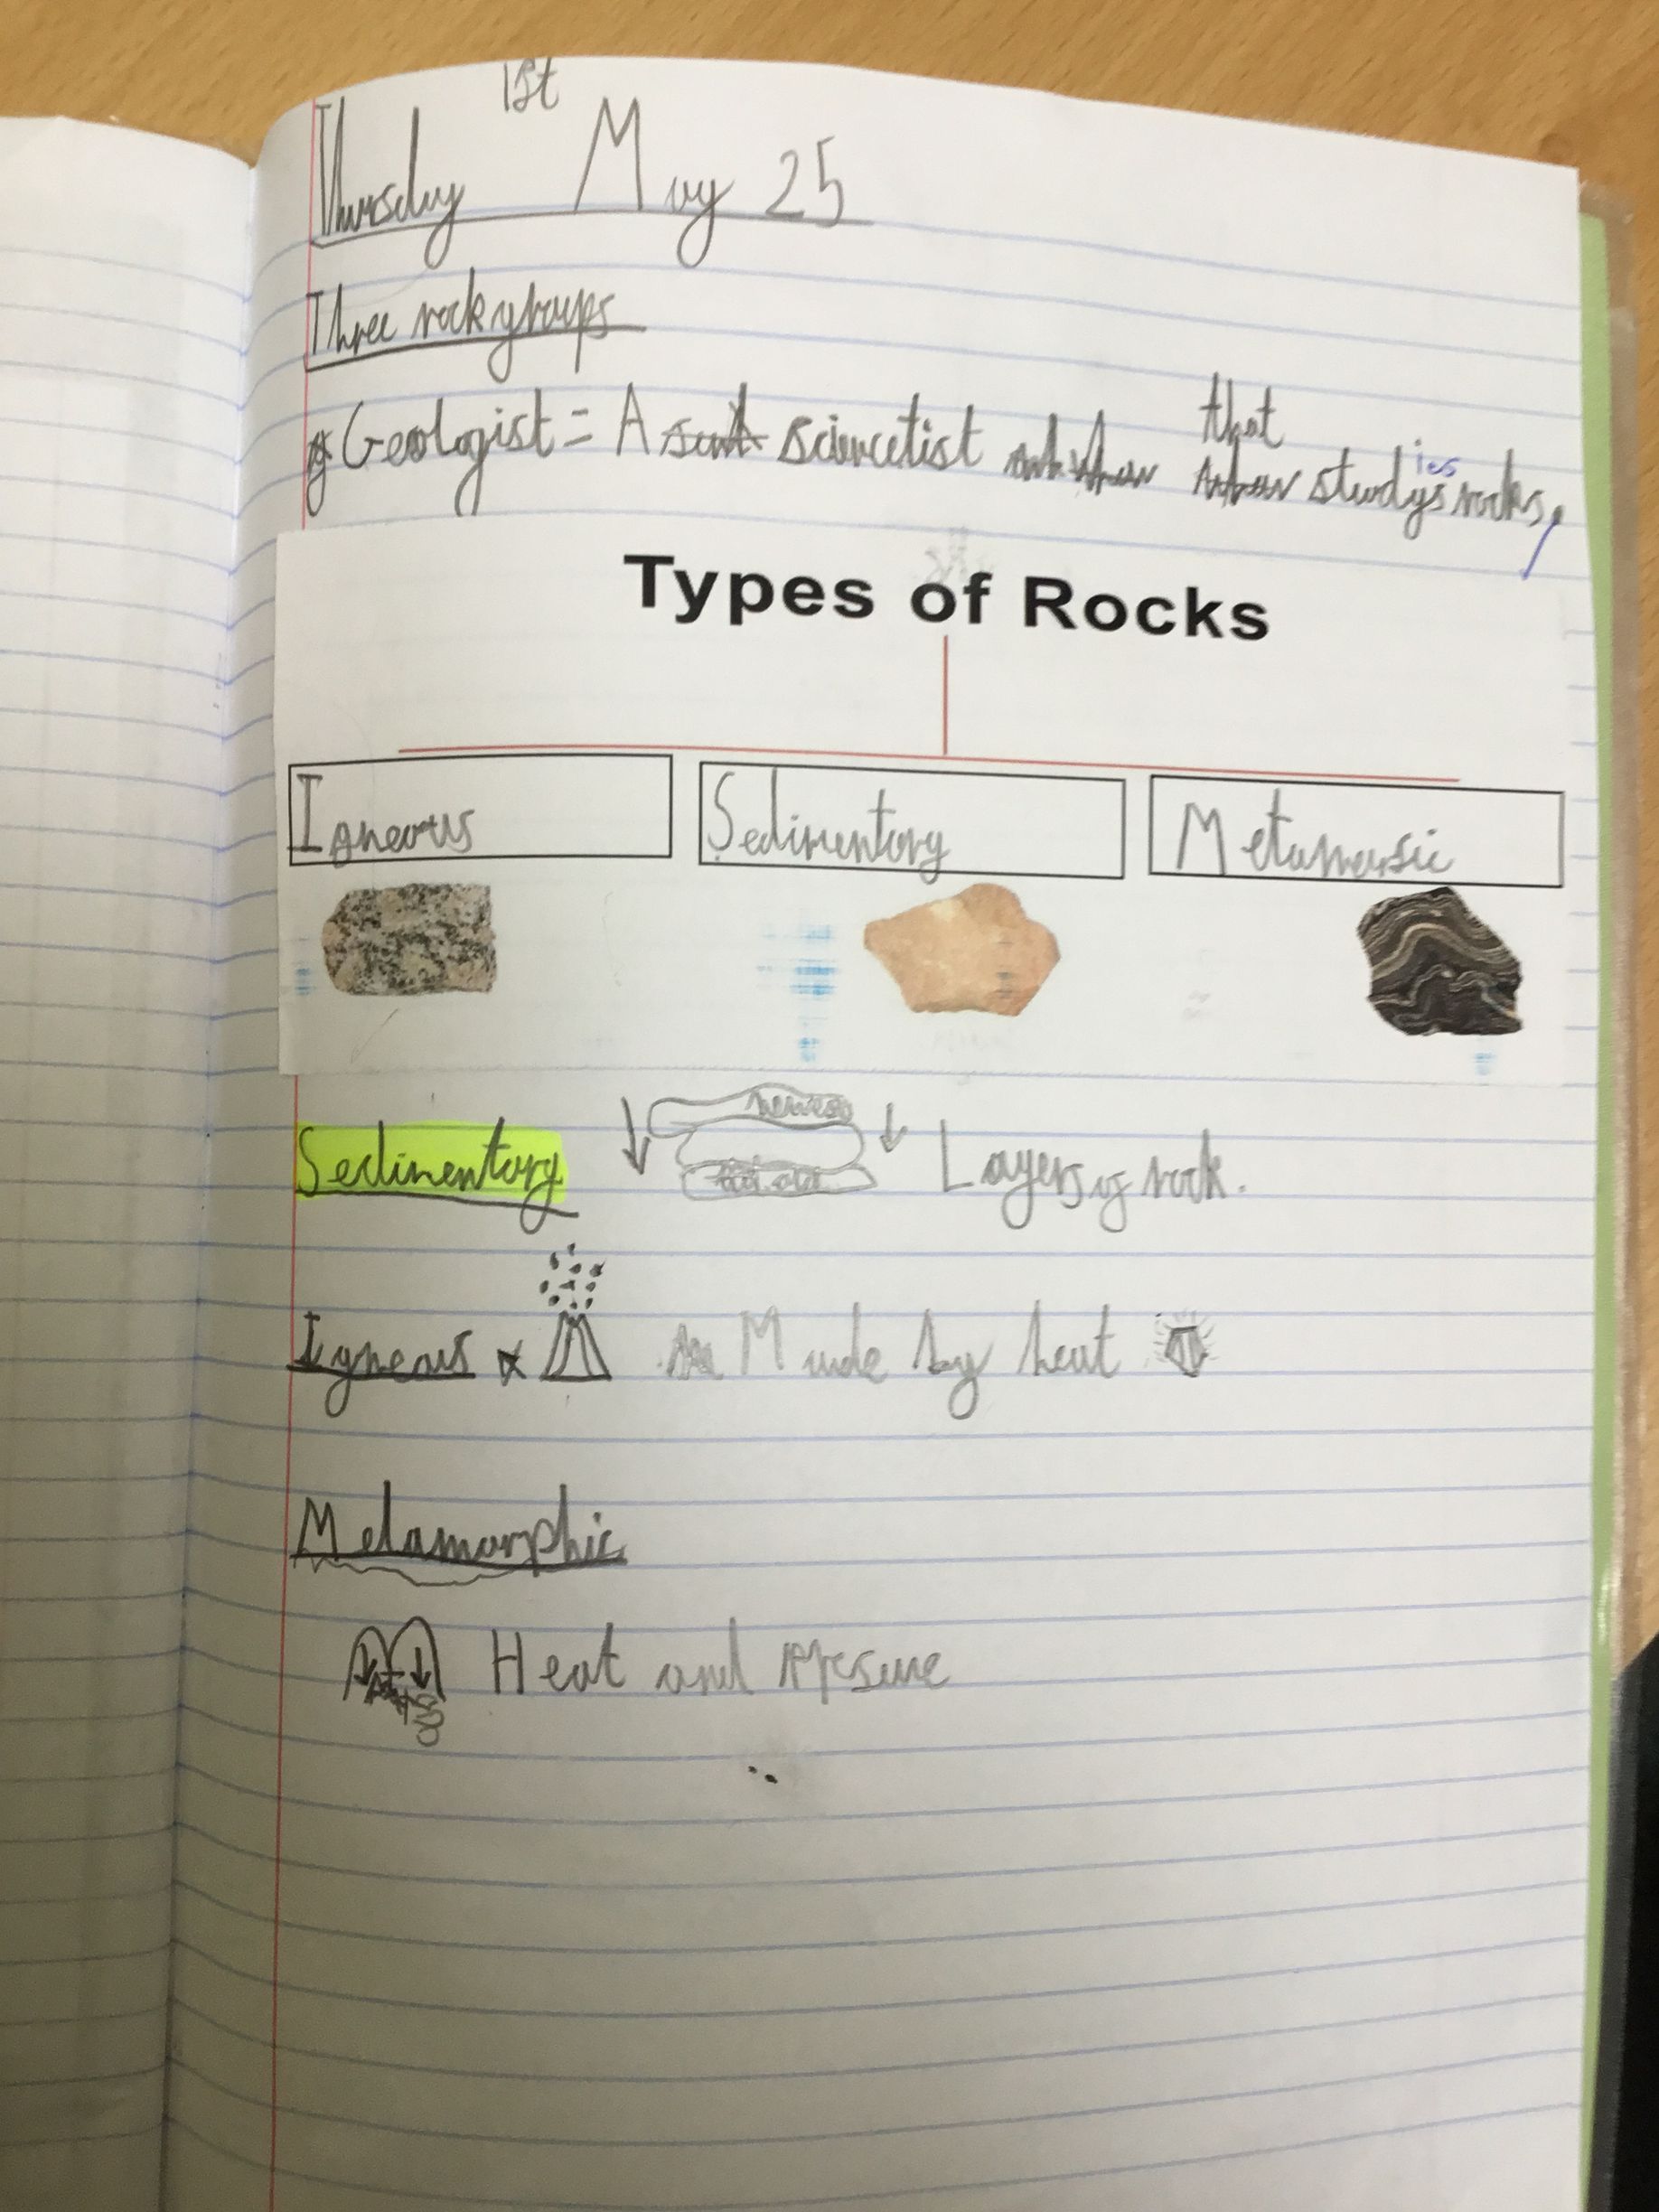 1st
Thursday May 25
Three rock groups
Geologist = A sciencetist that studyies rocks,
Types of Rocks
Igneous Sedimentory Metamorsic
newest
Sedimentory Layers of rock.
old
Igneous Made by heat
Metamorphic
Heat and Presure